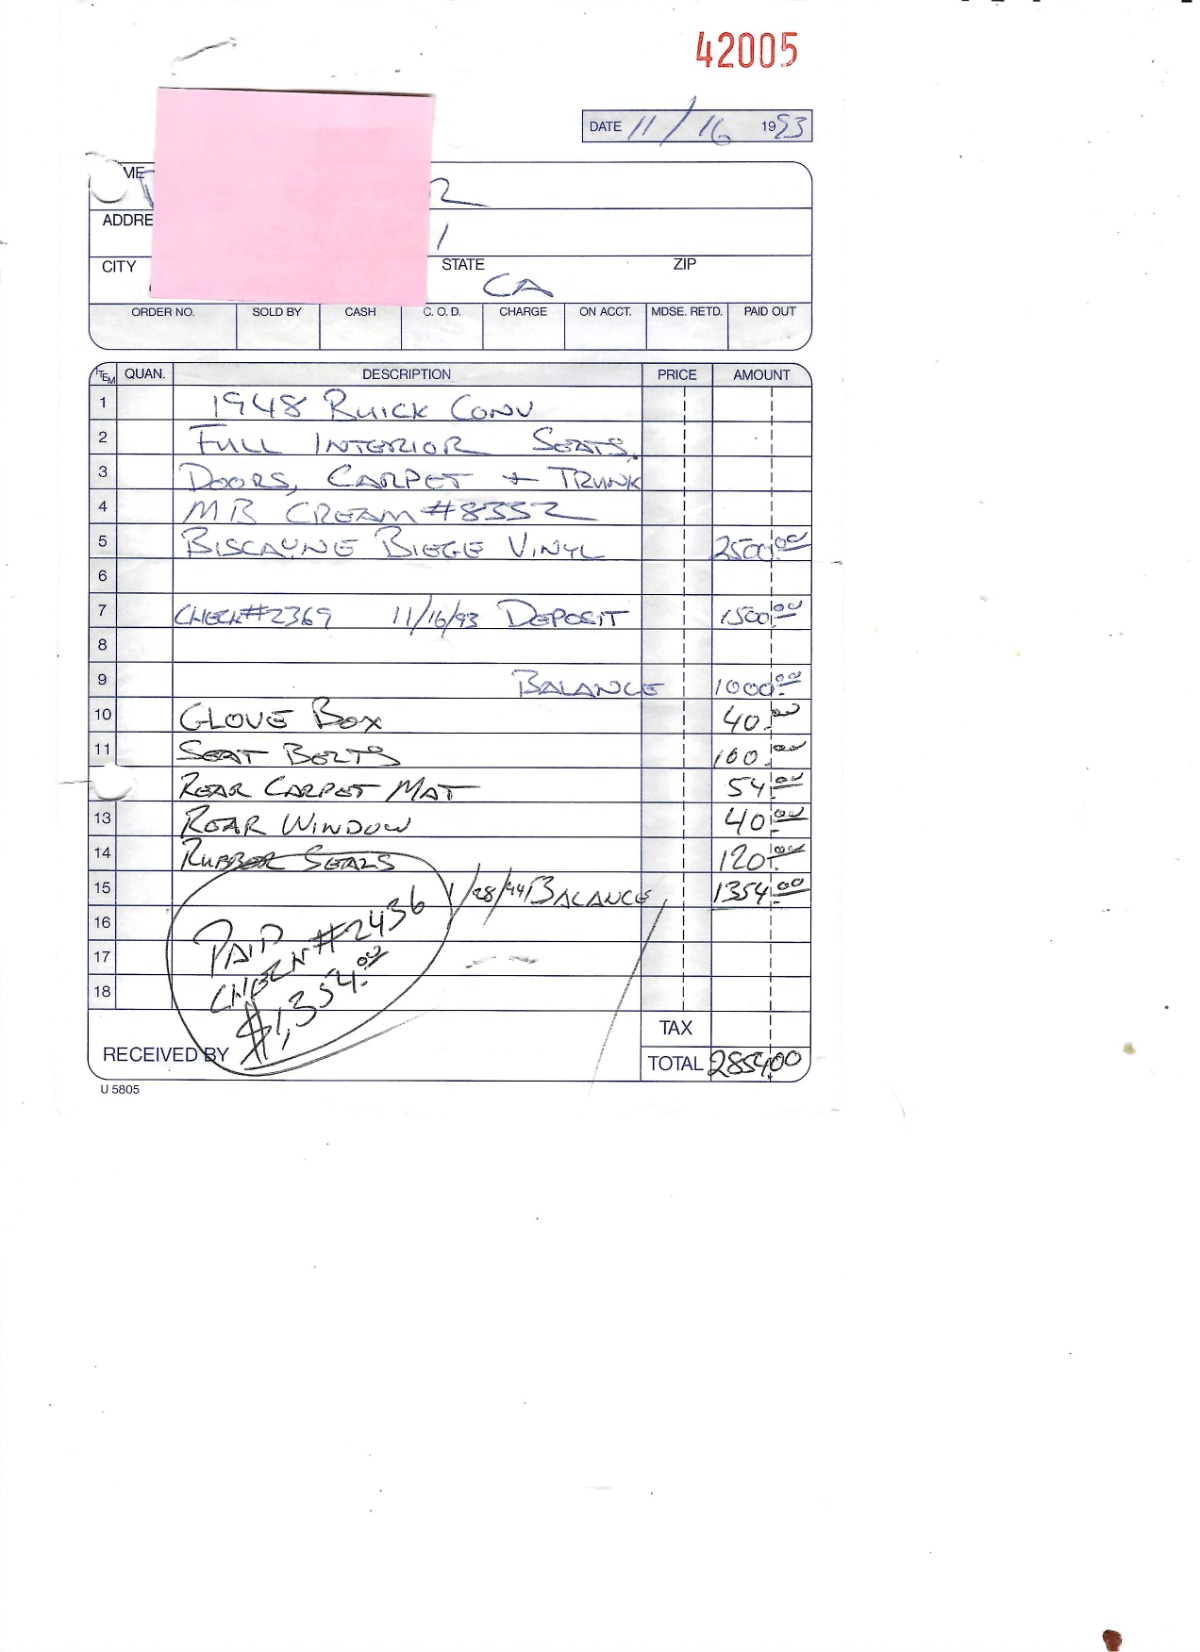 42005
DATE 11/16 1993
ME
R
ADDRE
1
CITY STATE CA ZIP
ORDER NO. SOLD BY CASH C. O. D. CHARGE ON ACCT. MDSE. RETD. PAID OUT
ITEM QUAN. DESCRIPTION PRICE AMOUNT
1 1948 BUICK CONV
2 FULL INTERIOR SEATS,
3 DOORS, CARPET + TRUNK
4 MB CREAM #8352
5 BISCAYNE BIEGE VINYL 2500.00
6
7 CHECK#2369 11/16/93 DEPOSIT 1500.00
8
9 BALANCE 1000.00
10 GLOVE BOX 40.00
11 SEAT BELTS 100.00
REAR CARPET MAT 54.00
13 REAR WINDOW 40.00
14 RUBBER SEALS 120.00
15 1/28/94 BALANCE 1354.00
16
17
18
PAID
CHECK #2436
$1,354.00
TAX
RECEIVED BY
TOTAL 2854.00
U 5805